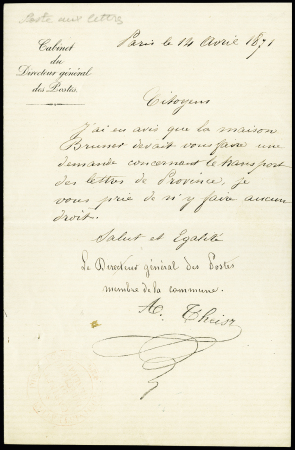 Poste aux lettres
Paris le 14 Avril 1871
Cabinet
du
Directeur général
des Postes.
Citoyens
J'ai eu avis que la maison
Brunet devait vous faire une
demande concernant le transport
des lettres de Province, je
vous prie de n'y faire aucun
droit.
Salut et Egalité
Le Directeur général des Postes
membre de la commune.
A. Theisz